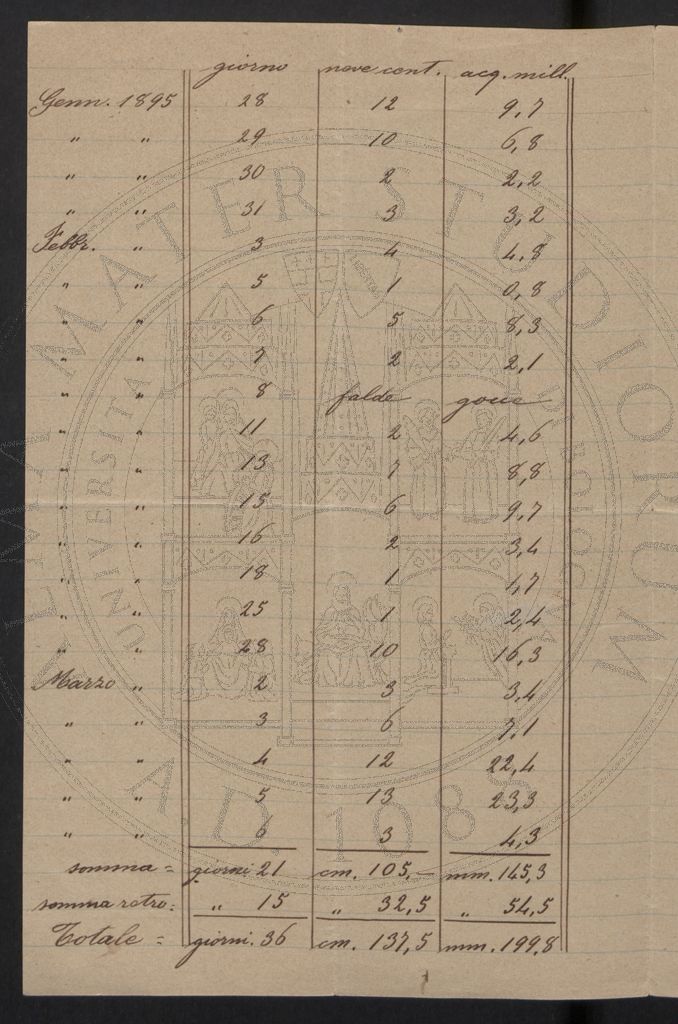 giorno neve cent. acq. mill.
Genn. 1895 28 12 9,7
" " 29 10 6,8
" " 30 2 2,2
" " 31 3 3,2
Febbr. " 3 4 4,8
" " 5 1 0,8
" " 6 5 8,3
" " 7 2 2,1
" " 8 falde gocce
" " 11 2 4,6
" " 13 7 8,8
" " 15 6 9,7
" " 16 2 3,4
" " 18 1 1,7
" " 25 1 2,4
" " 28 10 16,3
Marzo " 2 3 3,4
" " 3 6 7,1
" " 4 12 22,4
" " 5 13 23,3
" " 6 3 4,3
somma = giorni 21 cm. 105,— mm. 145,3
somma retro: " 15 " 32,5 " 54,5
Totale = giorni. 36 cm. 137,5 mm. 199,8
ALMA MATER STUDIORUM
UNIVERSITA DI BOLOGNA
A.D. 1088